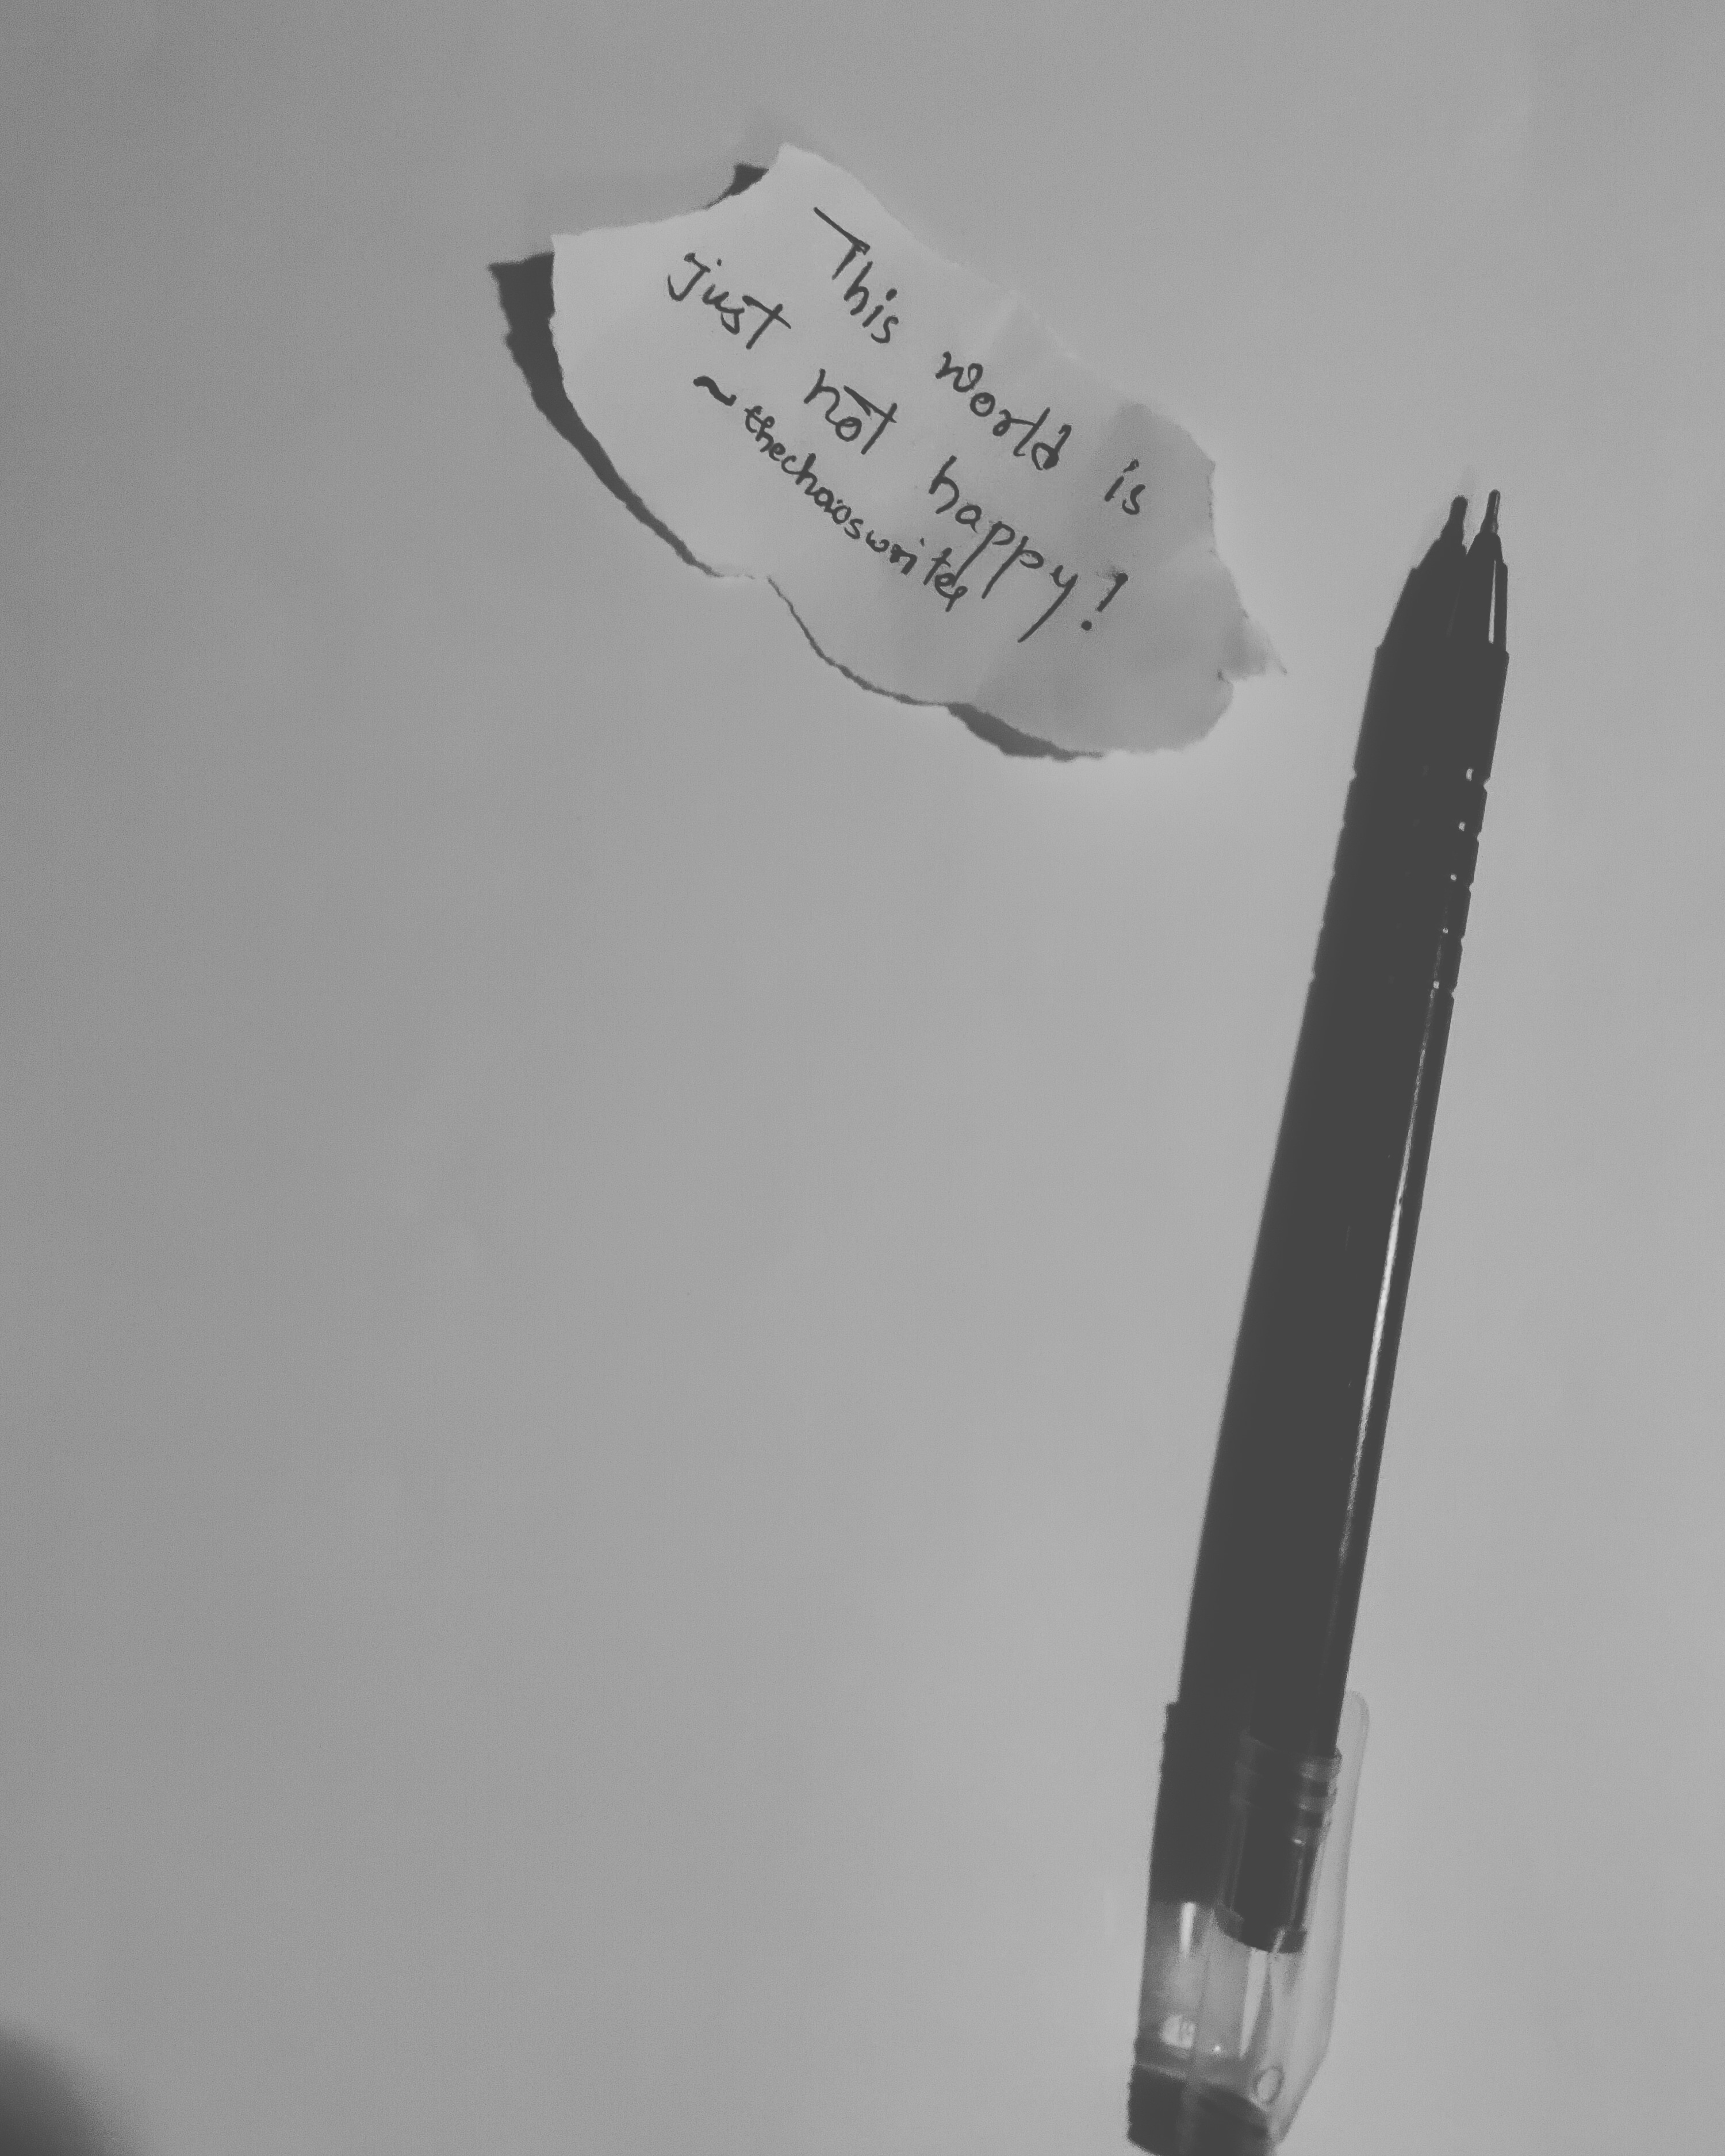 This world is
just not happy!
~thechaoswriter